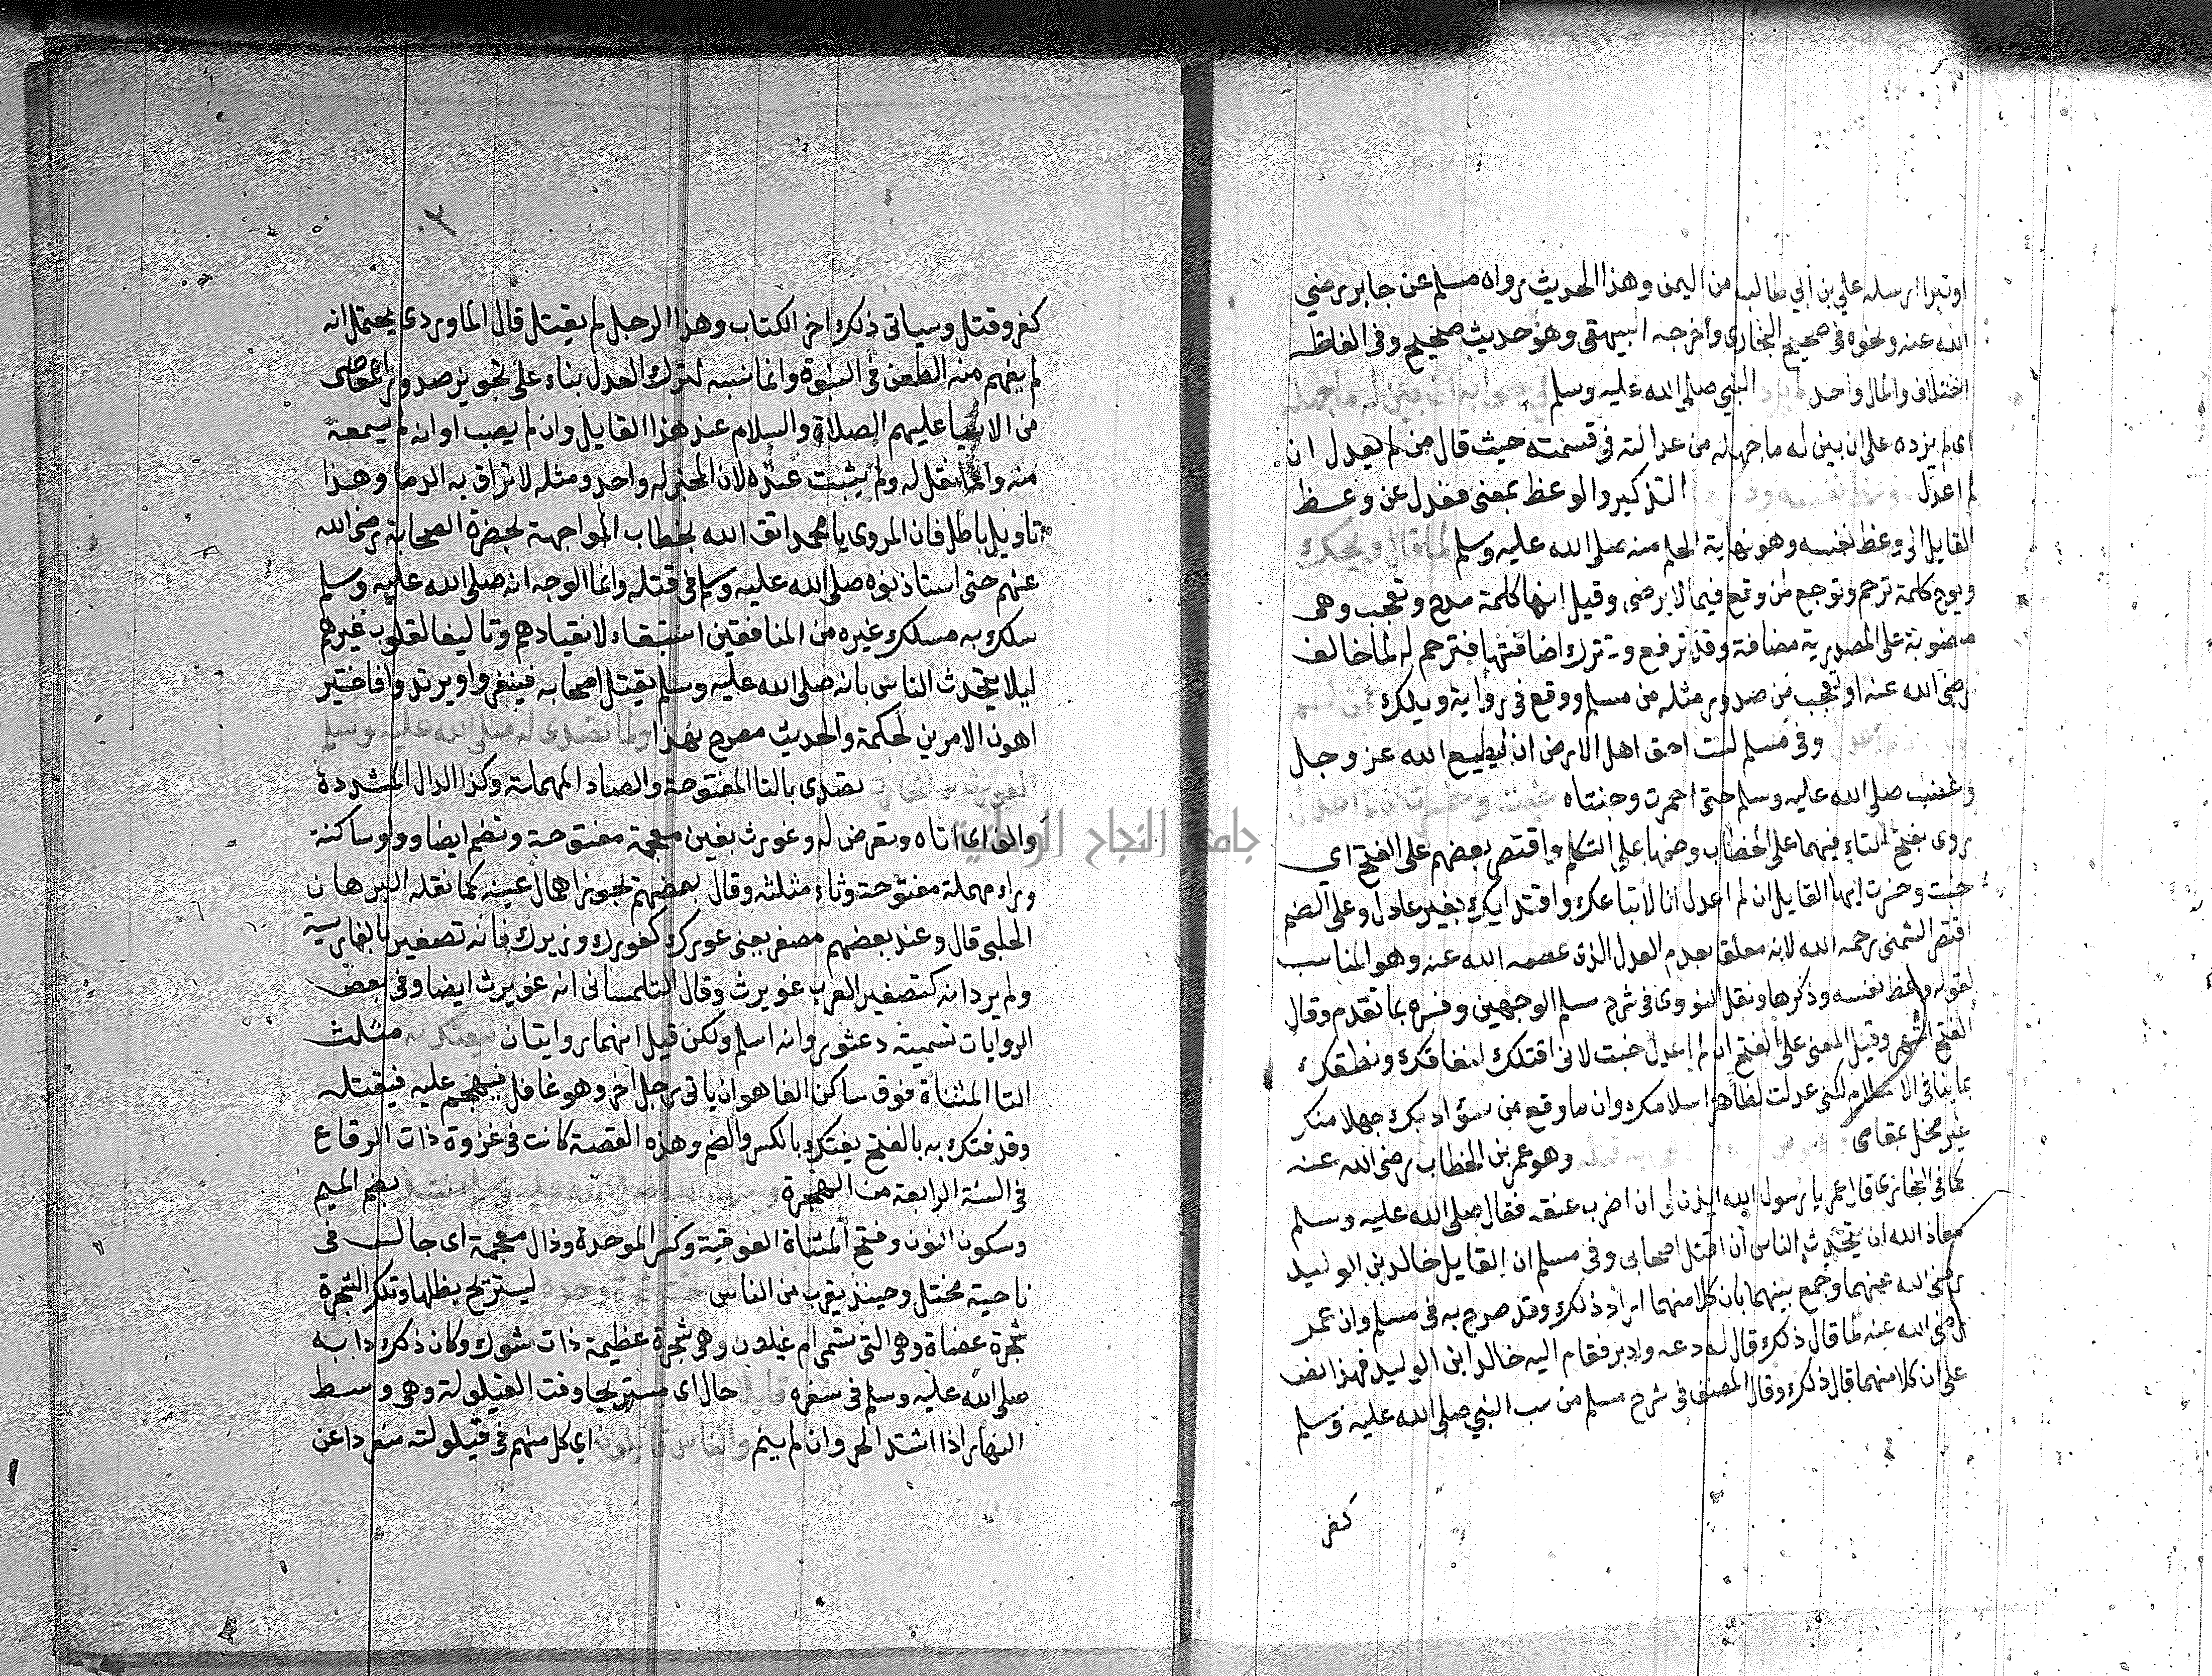 او تبرا ارسله علي بن ابي طالب من اليمن وهذا الحديث رواه مسلم عن جابر رضي
الله عنه ونحوه في صحيح البخاري وأخرجه البيهقي وهو حديث صحيح وفي الفاظه
اختلاف والمال واحد لم يزد النبي صلى الله عليه وسلم في جوابه ان بين له ما جهله
اى لم يزده على ان بين له ما جهله من عدالته في قسمته حيث قال من لم يعدل ان
لم اعدل ووعظ نفسه وذكرها التذكير والوعظ بمعنى فعدل عن وعظ
القايل الى وعظ نفسه وهو نهاية الحلم منه صلى الله عليه وسلم لما قال ويحك
ويوح كلمة ترحم وتوجع لمن وقع فيما لا يرضى وقيل انها كلمة مدح وتعجب وهى
منصوبة على المصدرية مضافة وقد ترفع وتترك اضافتها فترحم له لما خالف
رضى الله عنه او تعجب من صدور مثله من مسلم ووقع في رواية ويلك فمن لم
يعدل ان لم اعدل وفي مسلم لست احق اهل الارض ان يطيع الله عز وجل
فغضب صلى الله عليه وسلم حتى احمرت وجنتاه خبت وخسرت ان لم اعدل
روى بفتح التاء فيهما على الخطاب وضمها على التكلم واقتصر بعضهم على الفتح اى
خبت وخسرت ايها القايل ان لم اعدل انا لاتباعك واقتدايك بغير عادل وعلى الضم
اقتصر الشمنى رحمه الله لانه معلق بعدم العدل الذى عصمه الله عنه وهو المناسب
لقوله وعظ نفسه وذكرها ونقل النووى في شرح مسلم الوجهين وفسره بما تقدم وقال
الفتح اشهر وقيل المعنى على الفتح ان لم اعدل خبت لانى اقتلك لنفاقك ونطقك
بما ينافى الاسلام لكنى عدلت لظاهر اسلامك وان ما وقع من سؤ ادبك جهلا منك
غير مخل بمقامى وهو عمر بن الخطاب رضى الله عنه
كما في البخارى قال عمر يا رسول الله ايذن لى ان اضرب عنقه فقال صلى الله عليه وسلم
معاذ الله ان يتحدث الناس ان اقتل اصحابى وفى مسلم ان القايل خالد بن الوليد
رضى الله عنهما وجمع بينهما بان كلا منهما اراد ذلك وقد صرح به فى مسلم وان عمر
رضى الله عنه لما قال ذلك قال له دعه وادبر فقام اليه خالد ابن الوليد فهذا نص
على ان كلا منهما قال ذلك وقال المصنف فى شرح مسلم من سب النبي صلى الله عليه وسلم
كفر
كفر وقتل وسياتى ذلك اخر الكتاب وهذا الرجل لم يقتل قال الماوردى يحتمل انه
لم يفهم منه الطعن في النبوة وانما نسبه لترك العدل بناء على تجويز صدور المعاصى
من الانبيا عليهم الصلاة والسلام عند هذا القايل وان لم يصب او انه لم يسمعه
منه وانما نقل له ولم يثبت عنده لان المخبر له واحد ومثله لا تراق به الدما وهذا
تاويل باطل فان المروى يا محمد اتق الله بخطاب المواجهة بحضرة الصحابة رضى الله
عنهم حتى استاذنوه صلى الله عليه وسلم في قتله وانما الوجه انه صلى الله عليه وسلم
سلك به مسلك غيره من المنافقين استبقاء لانقيادهم وتاليفا لقلوب غيرهم
ليلا يتحدث الناس بانه صلى الله عليه وسلم يقتل اصحابه فينفروا ويرتدوا فاختير
اهون الامرين لحكمة والحديث مصرح بهذا ولما تصدى له صلى الله عليه وسلم
الغورث بن الحارث تصدى بالتا المفتوحة والصاد المهملة وكذا الدال المشددة
والف اى اتاه وتعرض له وغورث بغين معجمة مفتوحة وتضم ايضا وواو ساكنة
وراء مهملة مفتوحة وثاء مثلثه وقال بعضهم تجويز اهمال عينه كما نقله البرهان
الحلبى قال وعند بعضهم مصغر يعنى عورك كغورك وزيرك فانه تصغير بالفارسية
ولم يرد انه كتصغير العرب غويرث وقال التلمسانى انه غويرث ايضا وفى بعض
الروايات تسميته دعثور وانه اسلم ولكن قيل انهما روايتان ليفتك به مثلث
التا المثناة فوق ساكن الفا هو ان ياتى رجل اخر وهو غافل فيهجم عليه فيقتله
وقد فتك به بالفتح يفتك بالكسر والضم وهذه القصة كانت فى غزوة ذات الرقاع
فى السنة الرابعة من الهجرة ورسول الله صلى الله عليه وسلم منتبذ بضم الميم
وسكون النون وفتح المثناة الفوقية وكسر الموحدة وذال معجمة اى جالس فى
ناحية مختل وحينئذ يقرب من الناس تحت شجرة وحده ليستريح بظلها وتلك الشجرة
شجرة عضاة وهى التى تسمى ام غيلان وهى شجرة عظيمة ذات شوك وكان ذلك دابه
صلى الله عليه وسلم فى سفره قايلا حال اى مستريحا وقت القيلولة وهى وسط
النهار اذا اشتد الحر وان لم ينم والناس قايلون اى كل منهم فى قيلولته منفردا عن
جامعة النجاح الوطنية